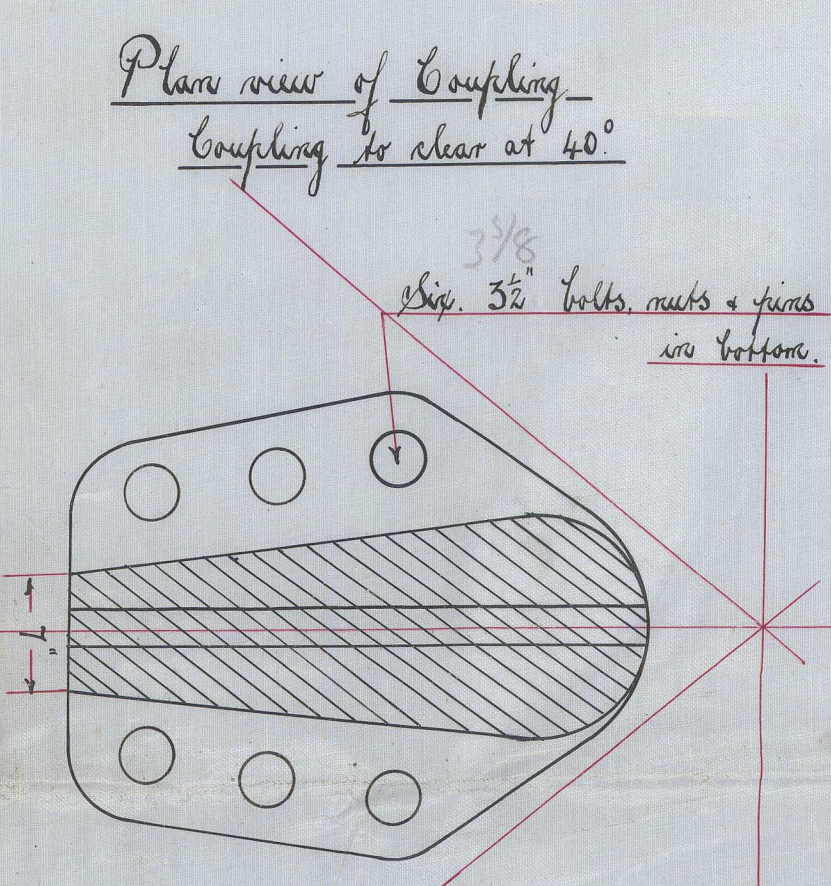 Plan view of Coupling
Coupling to clear at 40°.
3 5/8
Six. 3½" bolts, nuts & pins
in bottom.
7"